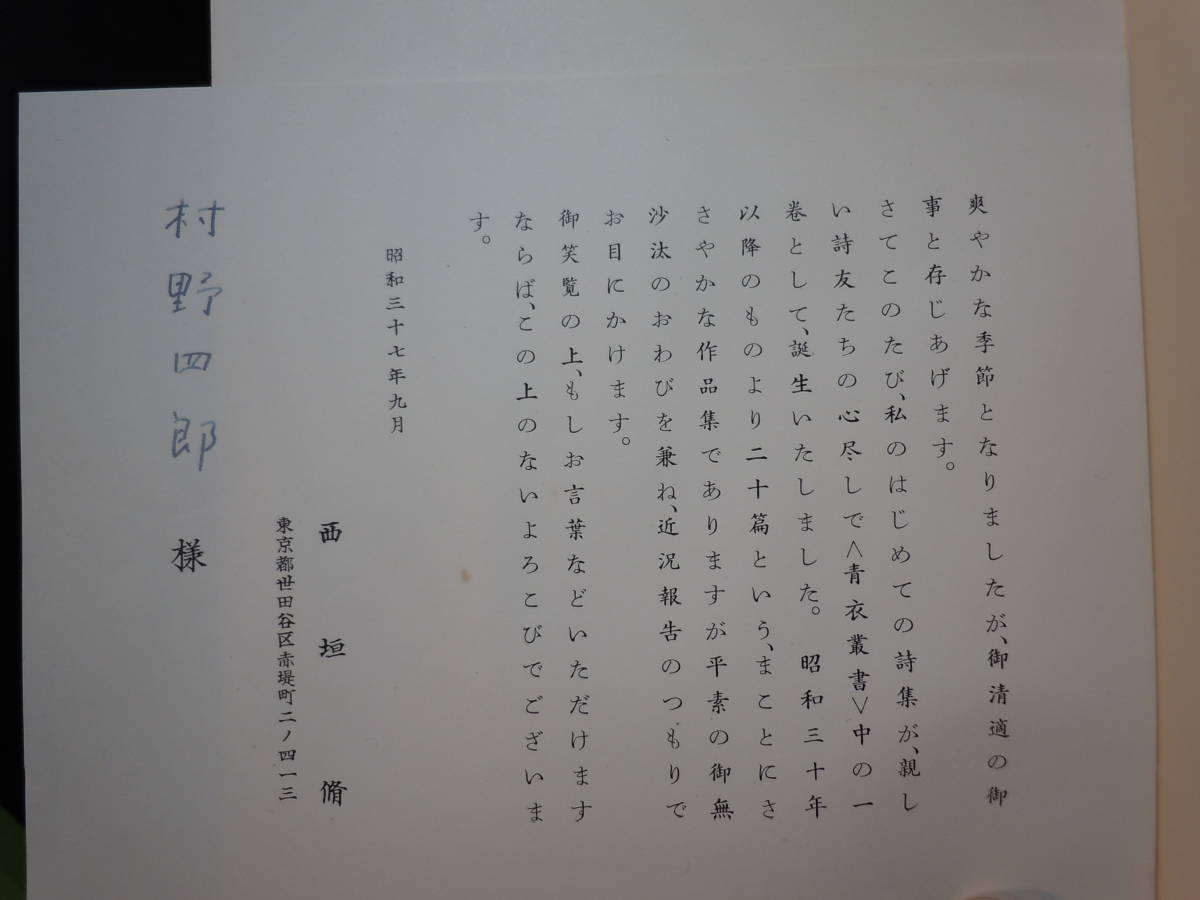 爽やかな季節となりましたが、御清適の御
事と存じあげます。
さてこのたび、私のはじめての詩集が、親し
い詩友たちの心尽しで＜青衣叢書＞中の一
巻として、誕生いたしました。　昭和三十年
以降のものより二十篇という、まことにさ
さやかな作品集でありますが平素の御無
沙汰のおわびを兼ね、近況報告のつもりで
お目にかけます。
御笑覧の上、もしお言葉などいただけます
ならば、この上のないよろこびでございま
す。
昭和三十七年九月
西垣脩
東京都世田谷区赤堤町二ノ四一三
村野四郎様